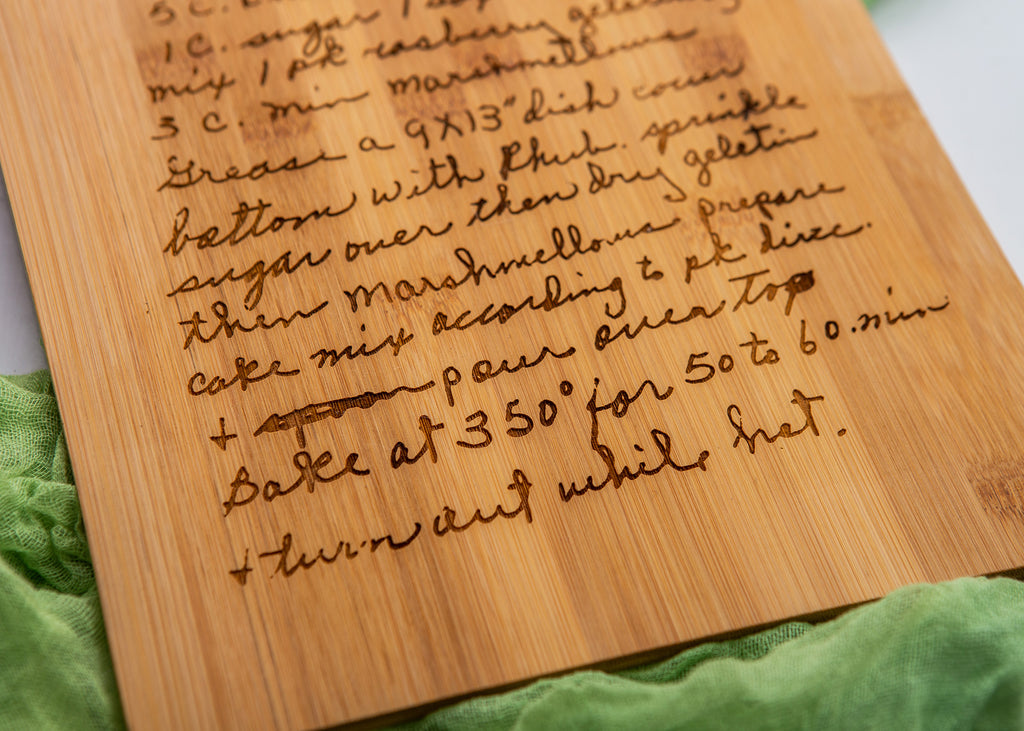 5 C.
1 C. sugar 1
mix 1 pk rasberry gelatin
3 C. min marshmellows
Grease a 9X13" dish cover
bottom with Rhub. sprinkle
sugar over then dry gelatin
then marshmellows prepare
cake mix according to pk direc.
+ pour over top
Bake at 350° for 50 to 60 min
+ turn out while hot.